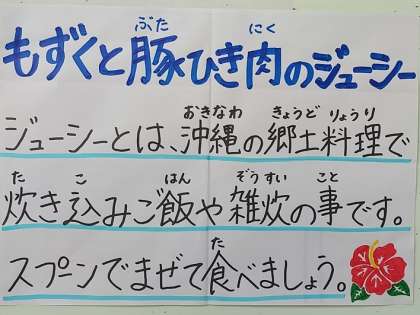 ぶた にく
もずくと豚ひき肉のジューシー
おきなわ きょうど りょうり
ジューシーとは、沖縄の郷土料理で
た こ はん ぞうすい こと
炊き込みご飯や雑炊の事です。
た
スプーンでまぜて食べましょう。